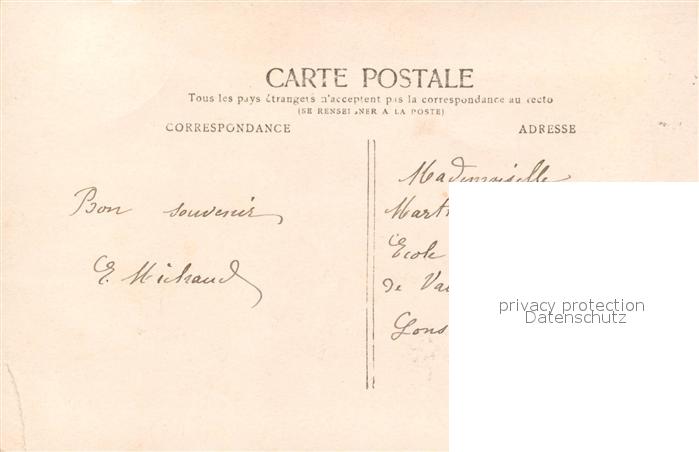 CARTE POSTALE
Tous les pays étrangers n'acceptent pas la correspondance au recto
(SE RENSEIGNER A LA POSTE)
CORRESPONDANCE
ADRESSE
Bon souvenir
E. Michaud
Mademoiselle
Mart
Ecole
de Va
Lons
privacy protection
Datenschutz